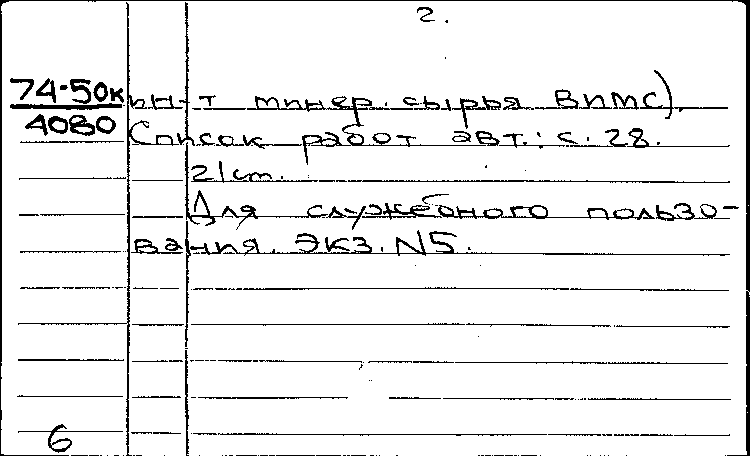 2.
74-50к ин-т минер. сырья ВИМС).
4080 Список работ авт.: с. 28.
21 cm.
Для служебного пользо-
вания. Экз. N5.
6